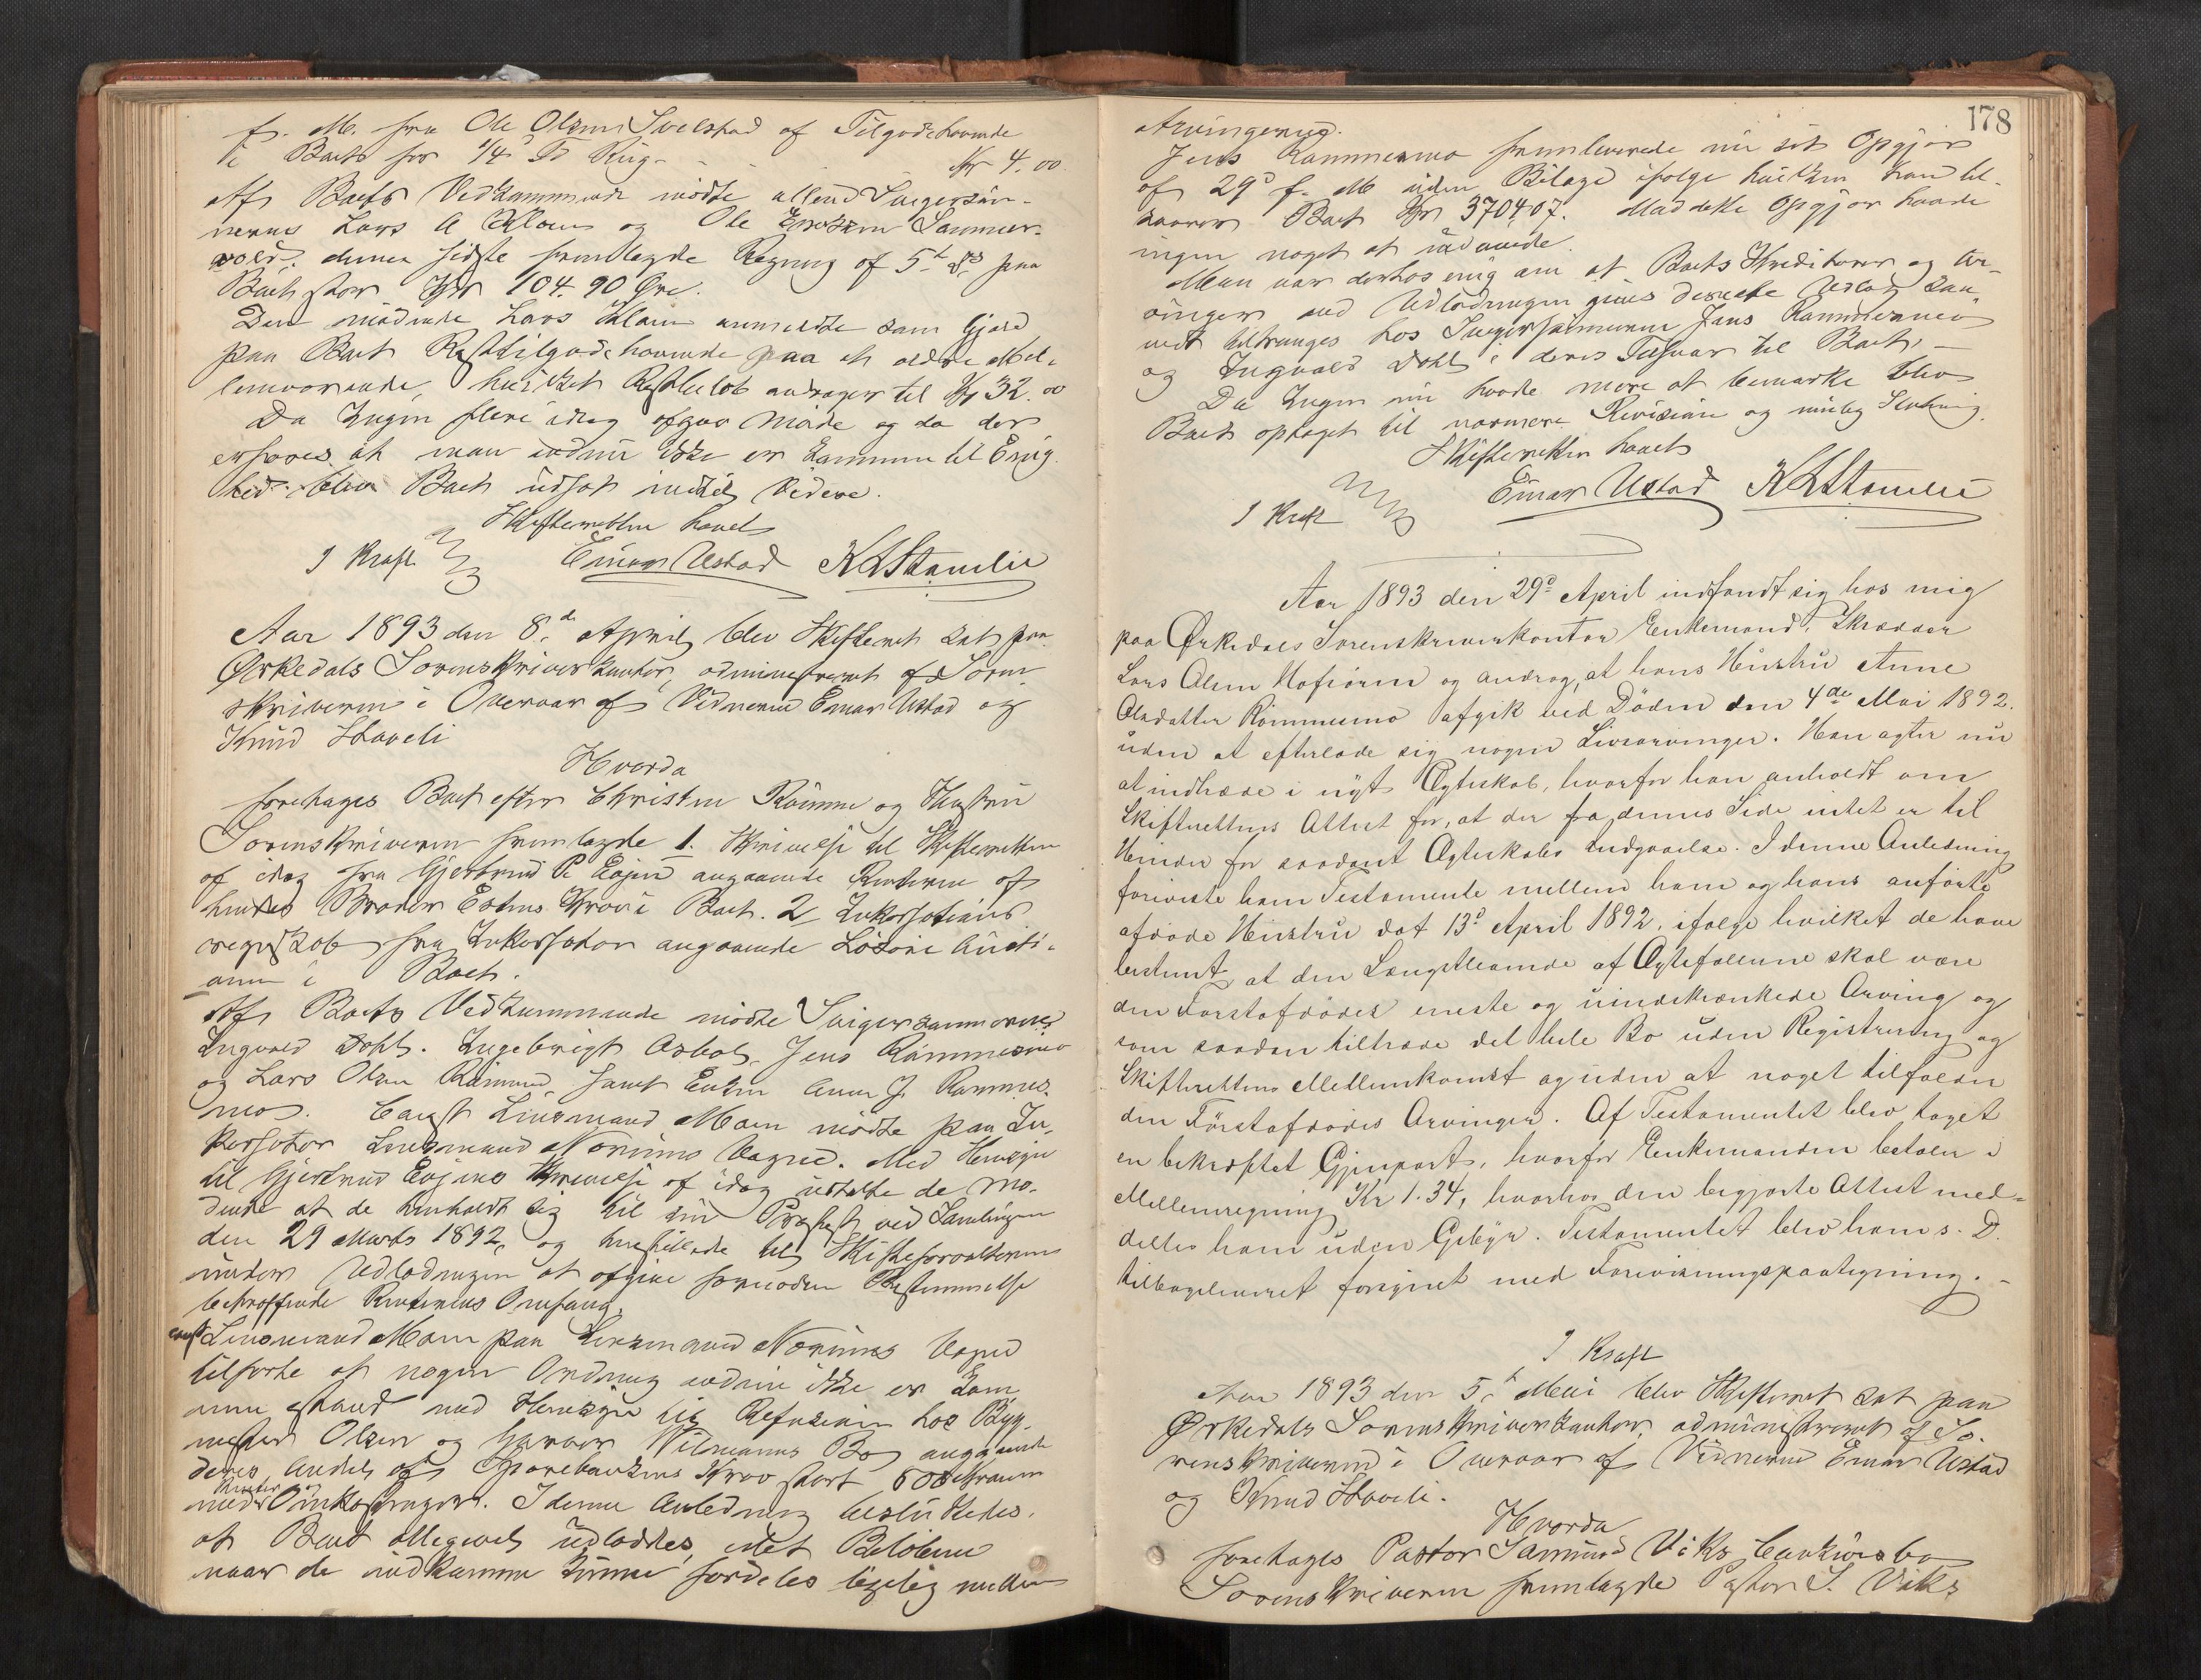 f. M. fra Ole Olsen Svelstad af Tilgodehavende
i Boet for 1/4 Td Rug - - - Kr 4.00.
Af Boets Vedkommende mødte alene Svigersøn-
nerne Lars A Klou og Ole Lammer-
vold; denne sidste fremlagde Regning af 5te ds paa
Boet stor Kr 104.90 Øre.
Den mødende Lars Klou anmeldte som Gjæld
paa Boet Resttilgodehavende paa et ældre Mel-
lemværende, hvilket Restbeløb andrager til Kr 32.00
Da Ingen flere idag afgav Møde og da der
erfares at man endnu ikke er kommen til Enig-
hed blev Boet udsat indtil Videre.
Skifteretten hævet
J Kraft Einar Ustad K K Stavelie
Aar 1893 den 8de April blev Skifteret sat paa
Ørkedals Sorenskriverkontor, administreret af Soren-
skriveren i Overvær af Vidnerne Einar Ustad og
Knud Staveli
Hvorda
foretages Boet efter Christen Römme og Hustru
Sorenskriveren fremlagde 1. Skrivelse til Skifteretten
af idag fra Gjertrud P. Eojen angaaende Renterne af
hendes Broder Estens Krav i Boet. 2 Inkassations
regnskab fra Inkassator angaaende Løsøre Aucti-
onen i Boet.
Af Boets Vedkommende mødte Svigersønnerne
Ingvald Dahl. Ingebrigt Asbøl, Jens Römmesmo
og Lars Olsen Römmes samt Enken Anne J. Römmes-
mo. Const Lensmand Moen mødte paa In-
kassator Lensmand Nerums Vegne. Med Hensyn
til Gjertrud Eojens Skrivelse af idag udtalte de mø-
dende at de henholdt sig til sin Protest ved Samlingen
den 29 Marts 1892, og henstillede til Skifteforvalteren
under Udlodningen at afgive fornøden Bestemmelse
betræffende Renternes Omfang.
const Lensmand Moen paa Lensmand Nerums Vegne
tilførte at nogen Ordning endnu ikke er kom-
men istand med Hensyn til Refusion hos Byg-
mester Olsen og Garver Wilmanns Bo angaaende
deres Andel af Sparebankens Krav stort 600 Kroner
med Renter og Omkostninger. I denne Anledning besluttedes,
at Boet alligevel udloddes, idet Beløbene
naar de indkomme kunne fordeles ligelig mellem
178
Arvingerne.
Jens Römmesmo fremleverede nu sit Opgjør
af 29de f. M uden Bilage ifølge hvilken han til-
svarer Boet Kr 3704.07. Mod dette Opgjør havde
ingen noget at indvende.
Man var derhos enig om at Boets Kreditorer og Ar-
vinger ved Udlodningen gives Udlæg saa
vidt tiltrænges hos Svigersønnerne Jens Römmesmo
og Ingvald Dahl i deres Tilsvar til Boet. —
Da Ingen nu havde mere at bemærke blev
Boet optaget til nærmere Revision og mulig Slutning.
Skifteretten hævet
J Kraft Einar Ustad K K Stavelie
Aar 1893 den 29de April indfandt sig hos mig
paa Ørkedals Sorenskriverkontor Enkemand, Skrædder
Lars Olsen Hofiøren og androg, at hans Hustru Anne
Olsdatter Römmesmo afgik ved Døden den 4de Mai 1892.
uden at efterlade sig nogen Livsarvinger. Han agter nu
at indtræde i nyt Ægteskab, hvorfor han anholdt om
Skifterettens Attest for, at der fra dennes Side intet er til
Hinder for saadant Ægteskabs Indgaaelse. I denne Anledning
foreviste han Testamente mellem ham og hans anførte
afdøde Hustru dat 13de April 1892, ifølge hvilket de have
bestemt, at den Længstlevende af Ægtefællerne skal være
den Førstafdødes eneste og uindskrænkede Arving og
som saadan tiltræde det hele Bo uden Registrering og
Skifterettens Mellemkomst og uden at noget tilfalder
den Förstafdødes Arvinger. Af Testamentet blev taget
en bekræftet Gjenpart, hvorfor Enkemanden betaler i
Mellemregning Kr 1.34, hvorhos den begjærte Attest med-
deltes ham uden Gebyr. Testamentet blev ham s. D.
tilbageleveret forsynet med Forevisningspaategning. -
J Kraft
Aar 1893 den 5te Mai blev Skifteret sat paa
Ørkedals Sorenskriverkontor, administreret af So-
renskriveren i Overvær af Vidnerne Einar Ustad
og Knud Staveli.
Hvorda
foretages Pastor Samund Viks Conkursbo
Sorenskriveren fremlagde Pastor S. Viks